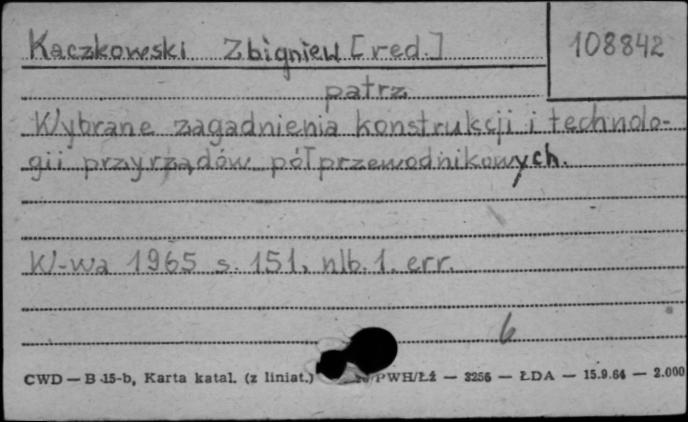 Kaczkowski Zbigniew [red.]
108842
patrz
Wybrane zagadnienia konstrukcji i technolo-
gii przyrządów półprzewodnikowych.
W-wa 1965 s. 151, nlb. 1. err.
6
CWD — B-15-b, Karta katal. (z liniat.) PWH/Łź — 3256 — ŁDA — 15.9.64 — 2.000